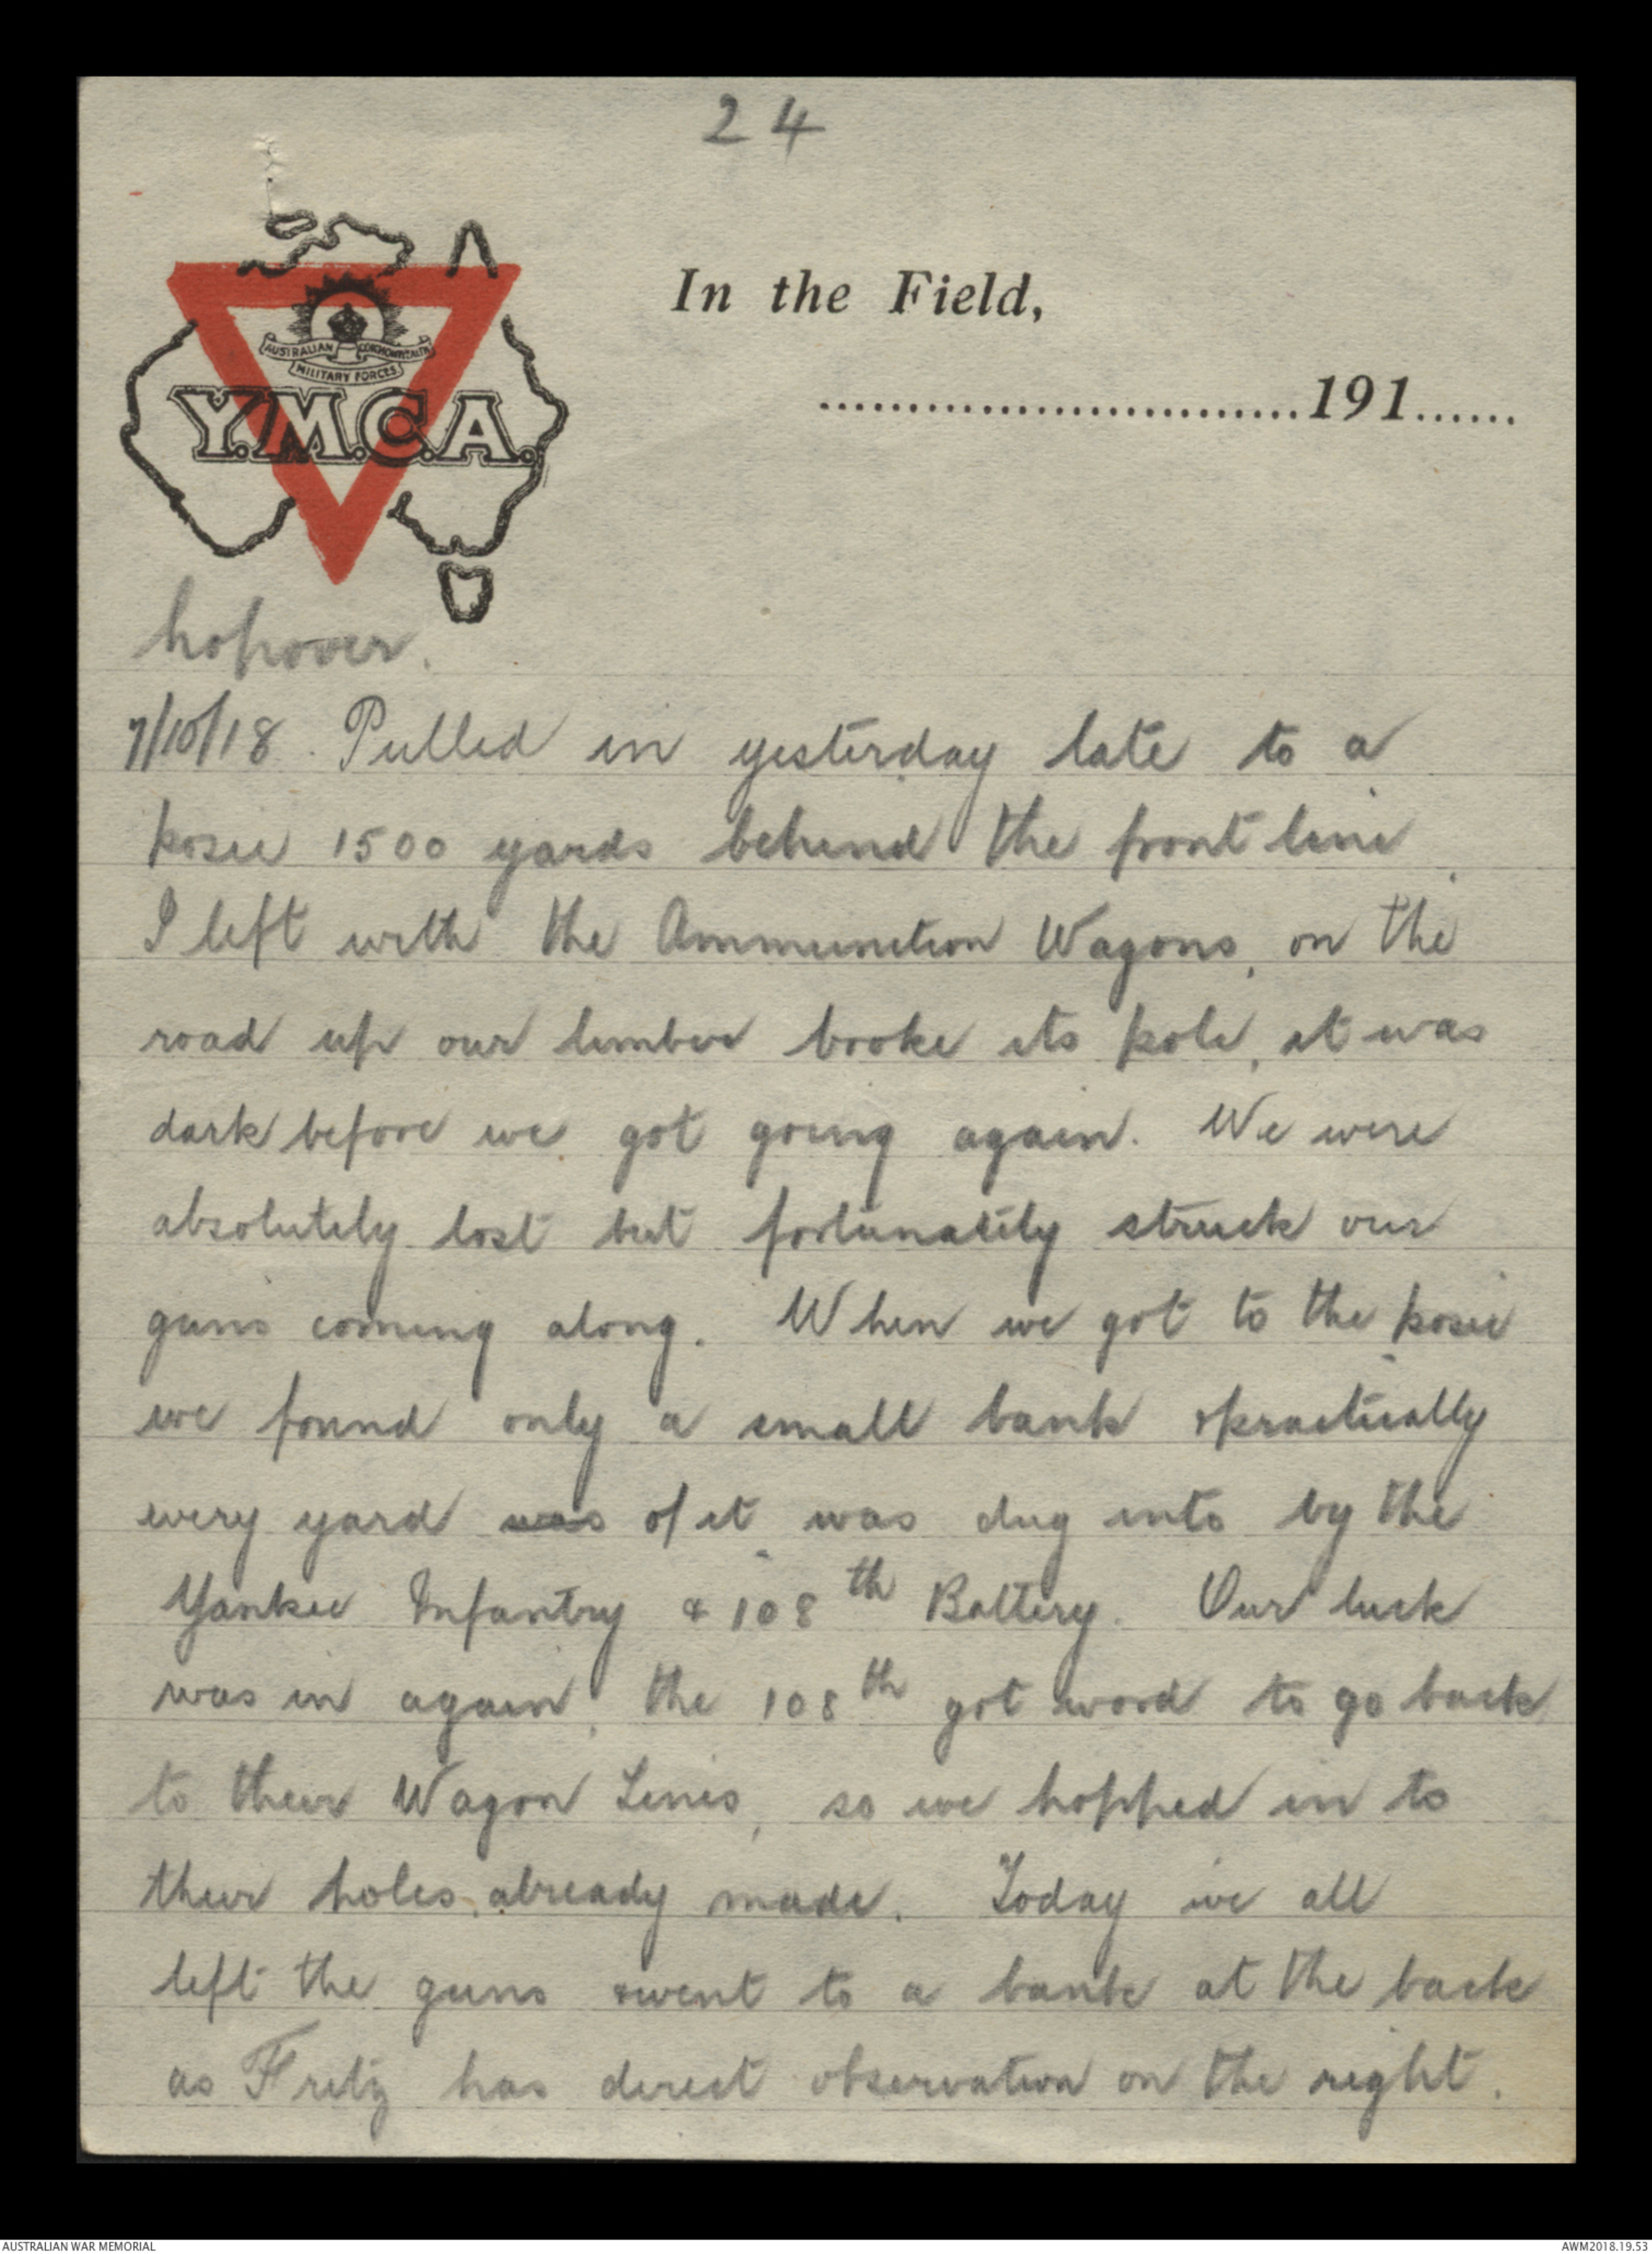 24
In the Field,
AUSTRALIAN COMMONWEALTH
MILITARY FORCES
Y.M.C.A.
..............................191......
hopover.
7/10/18. Pulled in yesterday late to a
posie 1500 yards behind the front line.
I left with the Ammunition Wagons, on the
road up our limber broke its pole, it was
dark before we got going again. We were
absolutely lost but fortunately struck our
guns coming along. When we got to the posie
we found only a small bank & practically
every yard was of it was dug into by the
Yankee Infantry & 108th Battery. Our luck
was in again, the 108th got word to go back
to their Wagon Lines, so we hopped in to
their holes, already made. Today we all
left the guns & went to a bank at the back
as Fritz has direct observation on the right.
AUSTRALIAN WAR MEMORIAL
AWM2018.19.53